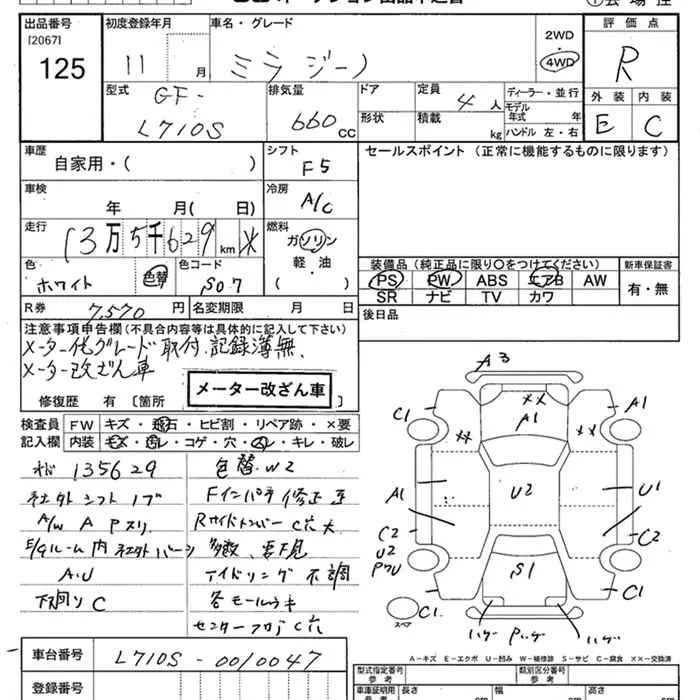 出品番号 初度登録年月 車名・グレード 2WD・4WD 評価点
[2067]
125 11 月 ミラジーノ R
型式 GF-L710S 排気量 660 CC ドア 定員 4人 ディーラー・並行 外装 内装
形状 積載 kg モデル年式 年 E C
ハンドル 左・右
車歴 自家用・( ) シフト F5 セールスポイント(正常に機能するものに限ります)
車検 年 月( 日) 冷房 A/C
走行 13万5千629km ※ 燃料 ガソリン 軽・油 ( )
色 ホワイト 色替 色コード S07
装備品(純正品に限り○をつけてください) 新車保証書
PS PW ABS エアB AW 有・無
SR ナビ TV カワ
R券 7,570円 名変期限 月 日 後日品
注意事項申告欄(不具合内容等は具体的に記入して下さい)
メーター他グレード取付、記録簿無、
メーター改ざん車
メーター改ざん車
修復歴 有 [箇所 ]
検査員記入欄 FW キズ・飛石・ヒビ割・リペア跡・×要
内装 キズ・汚レ・コゲ・穴・スレ・キレ・破レ
135629 色替 W2
社外シフトノブ Fインパネ修正歪
A/W A Pスリ Rサイドメンバー C穴大
E/Gルーム内社外バーツ 多数、要下見
A.U アイドリング不調
下廻りC 各モールウキ
センターフロアC穴
A3
C1 XX A1 A1
XX XX
A1 U2 U1
C2 U2 C2
S1
C1 C1
スペア
A−キズ E−エクボ U−凹み W−補修跡 S−サビ C−腐食 ××−交換済
車台番号 L710S-0010047
登録番号
型式指定番号 参考 類別区分番号 参考
車庫証明用 参考 長さ cm 幅 cm 高さ cm